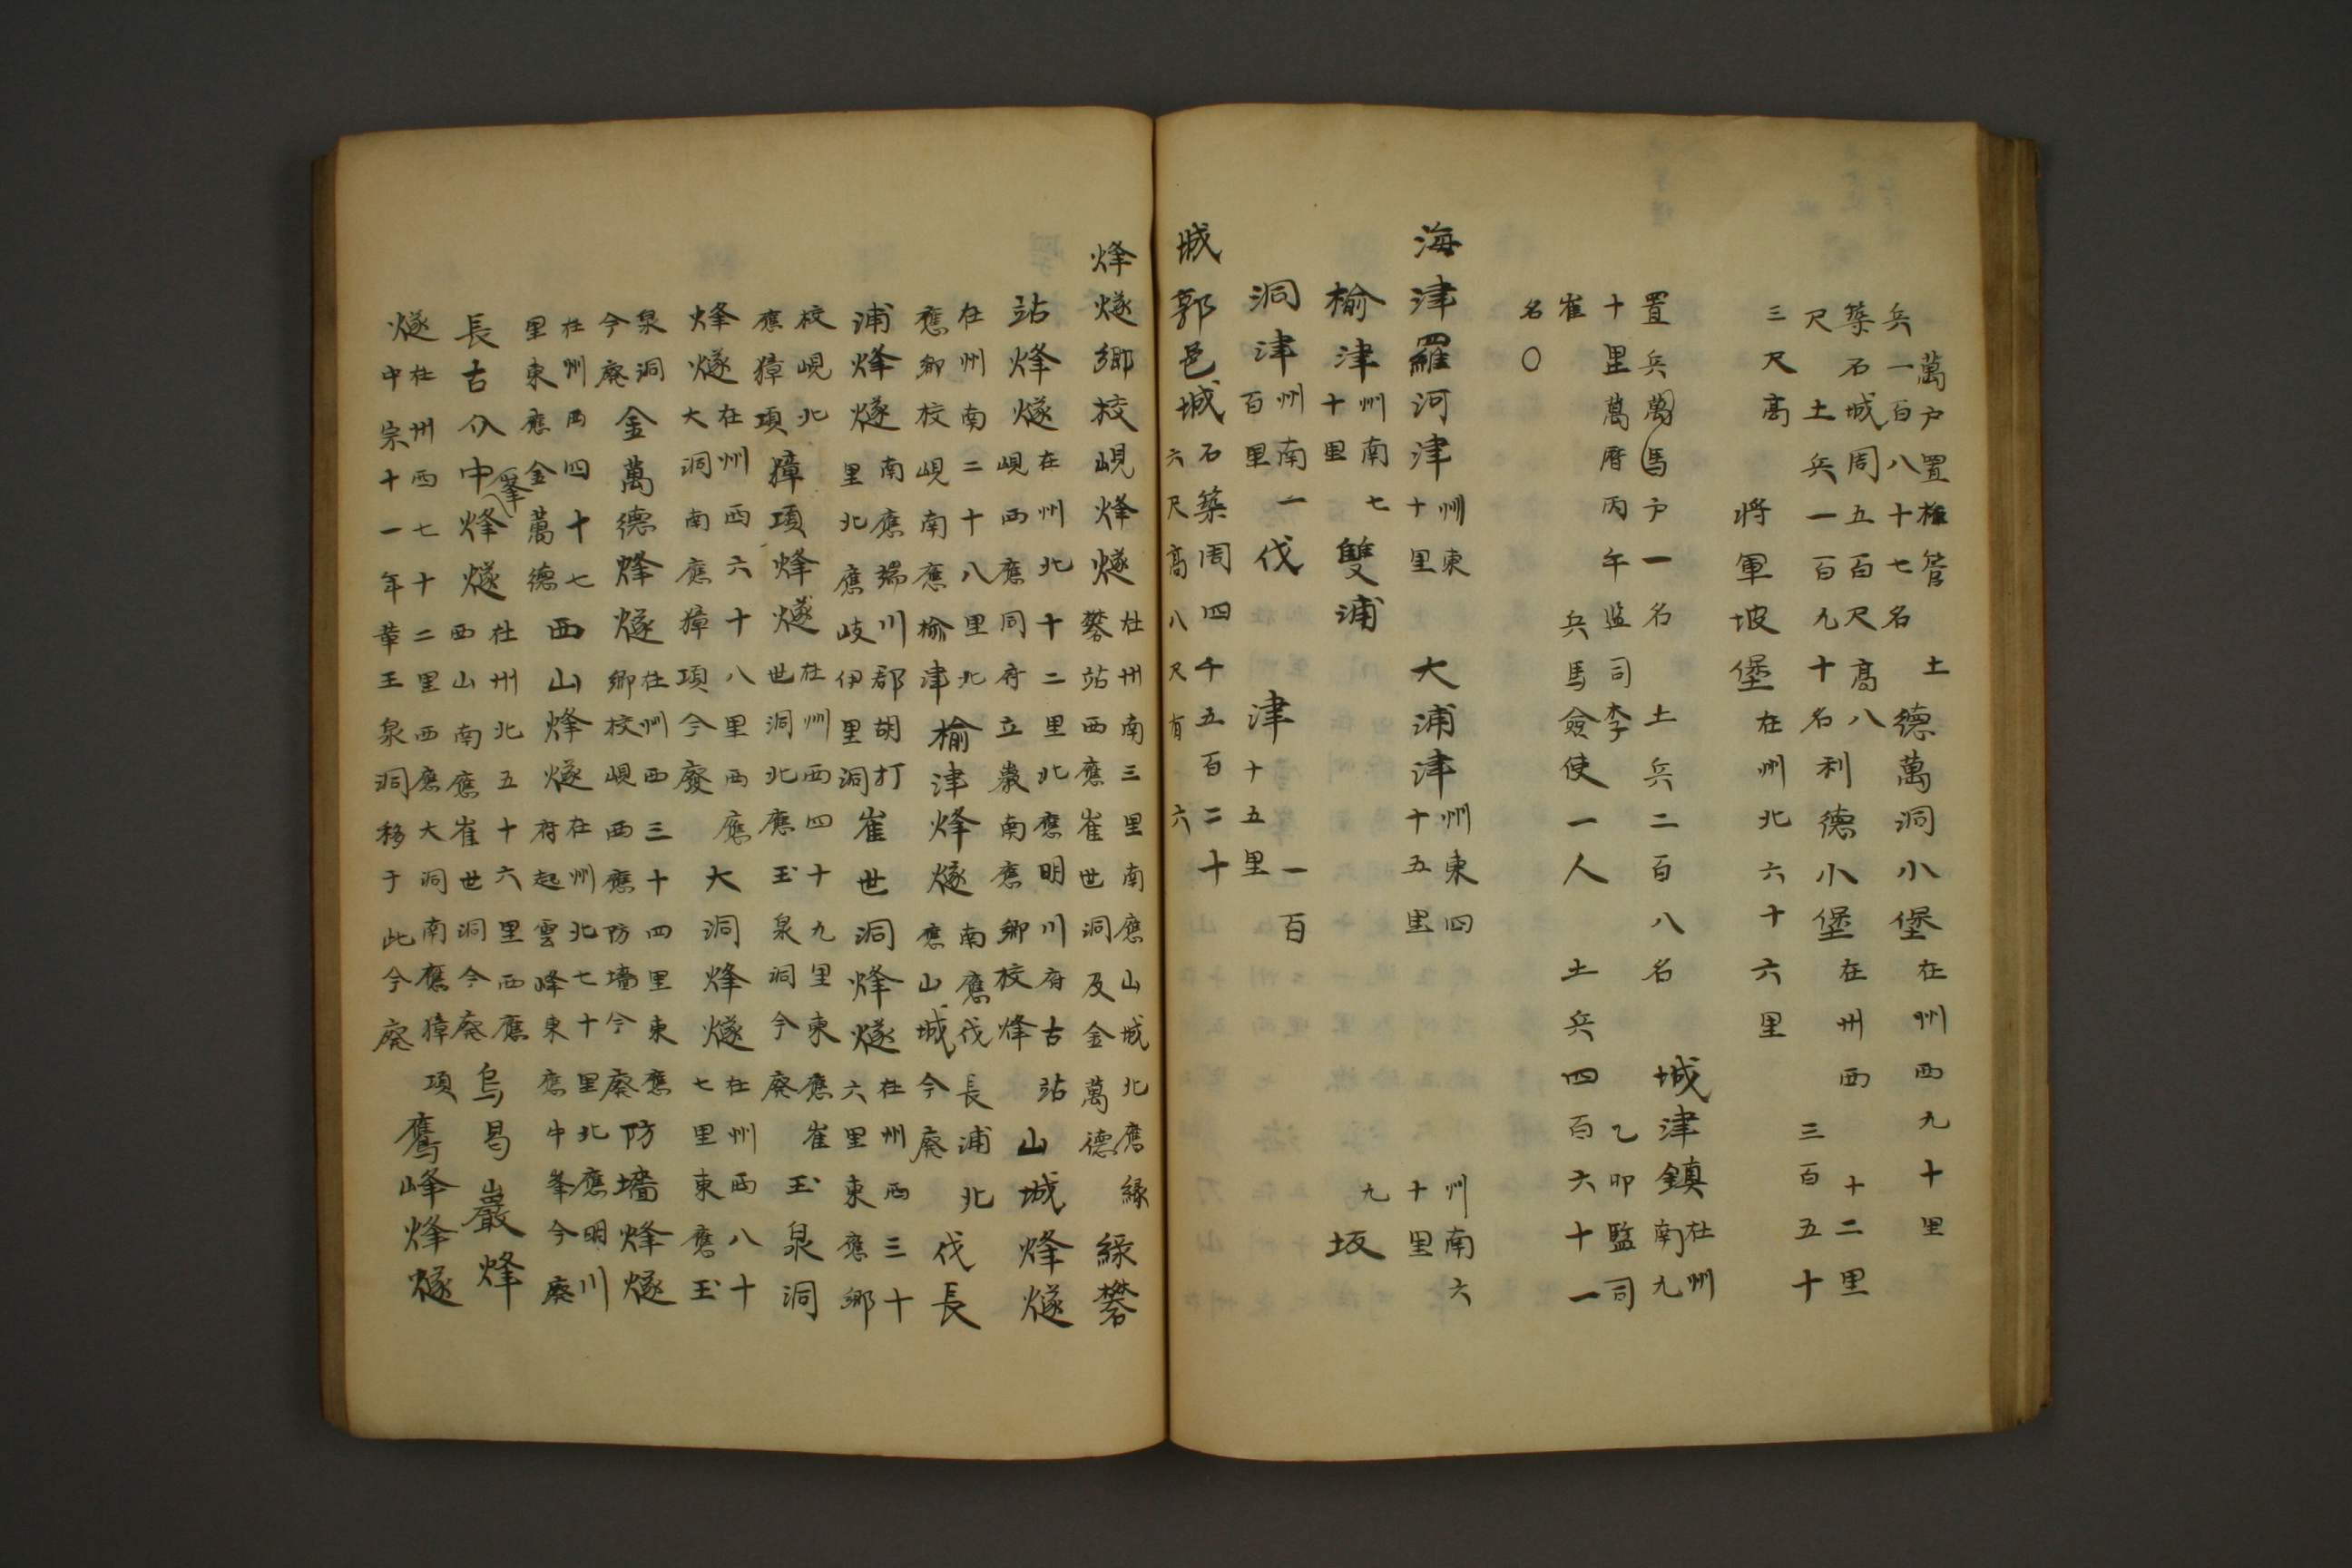 萬戶置權管 土德萬洞小堡在州西九十里
兵一百八十七名
築石城周五百尺高八 在州西 十二里
尺土兵一百九十名利德小堡 三百五十
三尺高 將軍坡堡在州北六十六里
置兵萬馬戶一名 土兵二百八名 城津鎮在州南九
十里萬曆丙午監司李 乙卯監司
崔 兵馬僉使一人 土兵四百六十一
名〇
海津羅河津州東十里 大浦津州東四十五里 州南六十里
榆津州南七十里 雙浦 九 坂
洞津州南一百里 伐 津 一百十五里
城郭邑城石築周四千五百二十六尺高八尺有六
烽燧鄉校峴烽燧在州南三里南應山城北應緣礬站西應崔世洞及金萬德 緣礬
站烽燧在州北十二里北應明川府古站峴西應同府立巖南應鄉校烽 山城烽燧
在州南二十八里北應鄉校峴南應榆津 榆津烽燧南應伐長浦北應山城今廢 伐長
浦烽燧南應端川郡胡打里北應岐伊里洞 崔世洞烽燧在州西三十六里東應鄉
校峴北應獐項 獐項烽燧在州西四十九里東應崔世洞北應玉泉洞今廢 玉泉洞
烽燧在州西六十八里西應大洞南應獐項今廢 大洞烽燧在州西八十七里東應玉
泉洞今廢 金萬德烽燧在州西三十四里東應鄉校峴西應防墻今廢 防墻烽燧
在州西四十七里東應金萬德 西山烽燧在州北七十里北應明川府起雲峰東應牛峯今廢
長古介中峯烽燧在州北五十六里西應西山南應崔世洞今廢 烏曷巖烽
燧在州西七十二里西應大洞南應獐項中宗十一年革玉泉洞移于此今廢 鷹峰烽燧